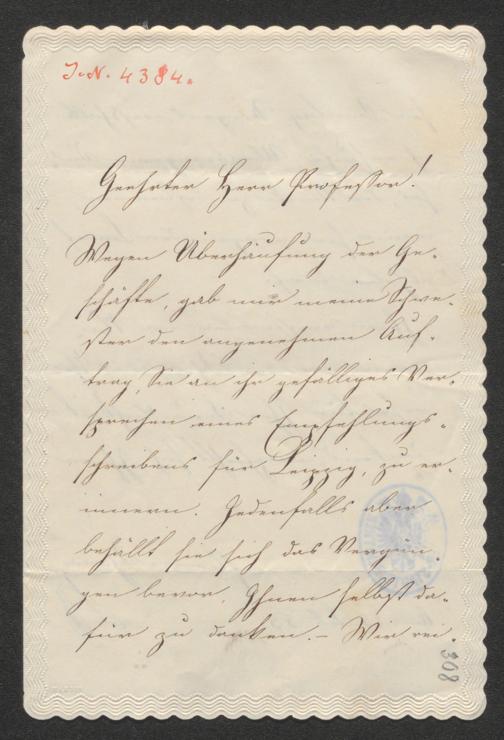 I.N. 4384.
Geehrter Herr Professor!
Wegen Überhäufung der Ge-
schäfte, gab mir meine Schwe-
ster den angenehmen Auf-
trag, Sie an ihr gefälliges Ver-
sprechen eines Empfehlungs-
schreibens für Leipzig, zu er-
innern. Jedenfalls aber
behällt sie sich das Vergnü-
gen bevor, Ihnen selbst da-
für zu danken. – Wir rei-
308